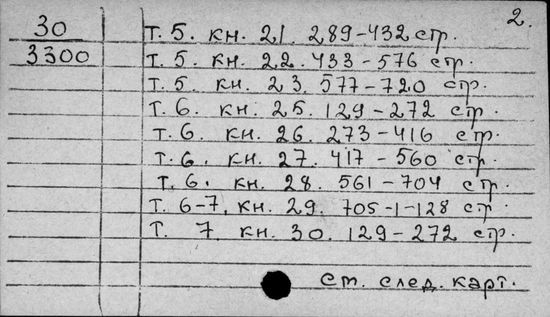 2.
30
3300
Т. 5. кн. 21. 289-432 стр.
Т. 5. кн. 22. 433-576 стр.
Т. 5. кн. 23. 577-720 стр.
Т. 6. кн. 25. 129-272 стр.
Т. 6. кн. 26. 273-416 стр.
Т. 6. кн. 27. 417-560 стр.
Т. 6. кн. 28. 561-704 стр.
Т. 6-7. кн. 29. 705-1-128 стр.
Т. 7. кн. 30. 129-272 стр.
См. след. карт.